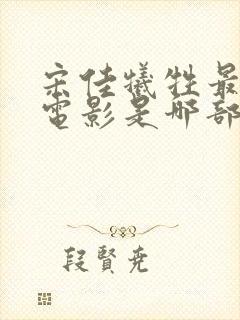 宋佳犧牲最
電影是哪部
段賢尭